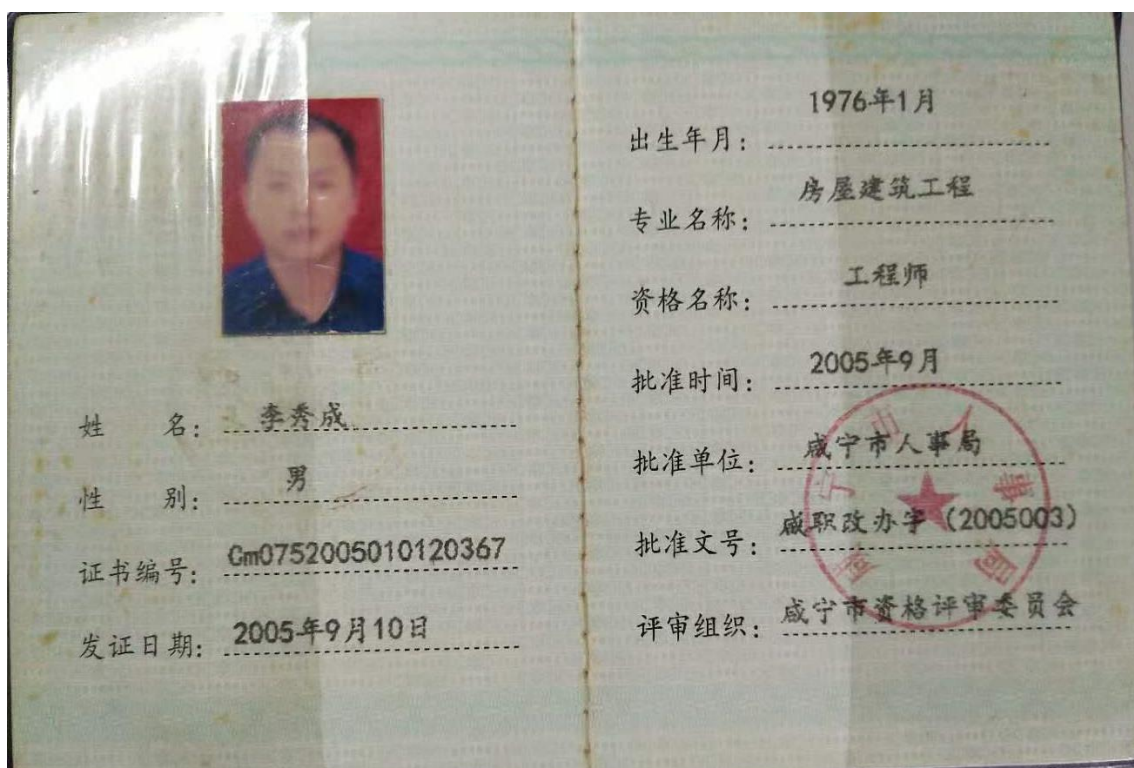 姓名：李秀成
性别：男
证书编号：Gm0752005010120367
发证日期：2005年9月10日
出生年月：1976年1月
专业名称：房屋建筑工程
资格名称：工程师
批准时间：2005年9月
批准单位：咸宁市人事局
批准文号：咸职改办字（2005003）
评审组织：咸宁市资格评审委员会
咸宁市人事局